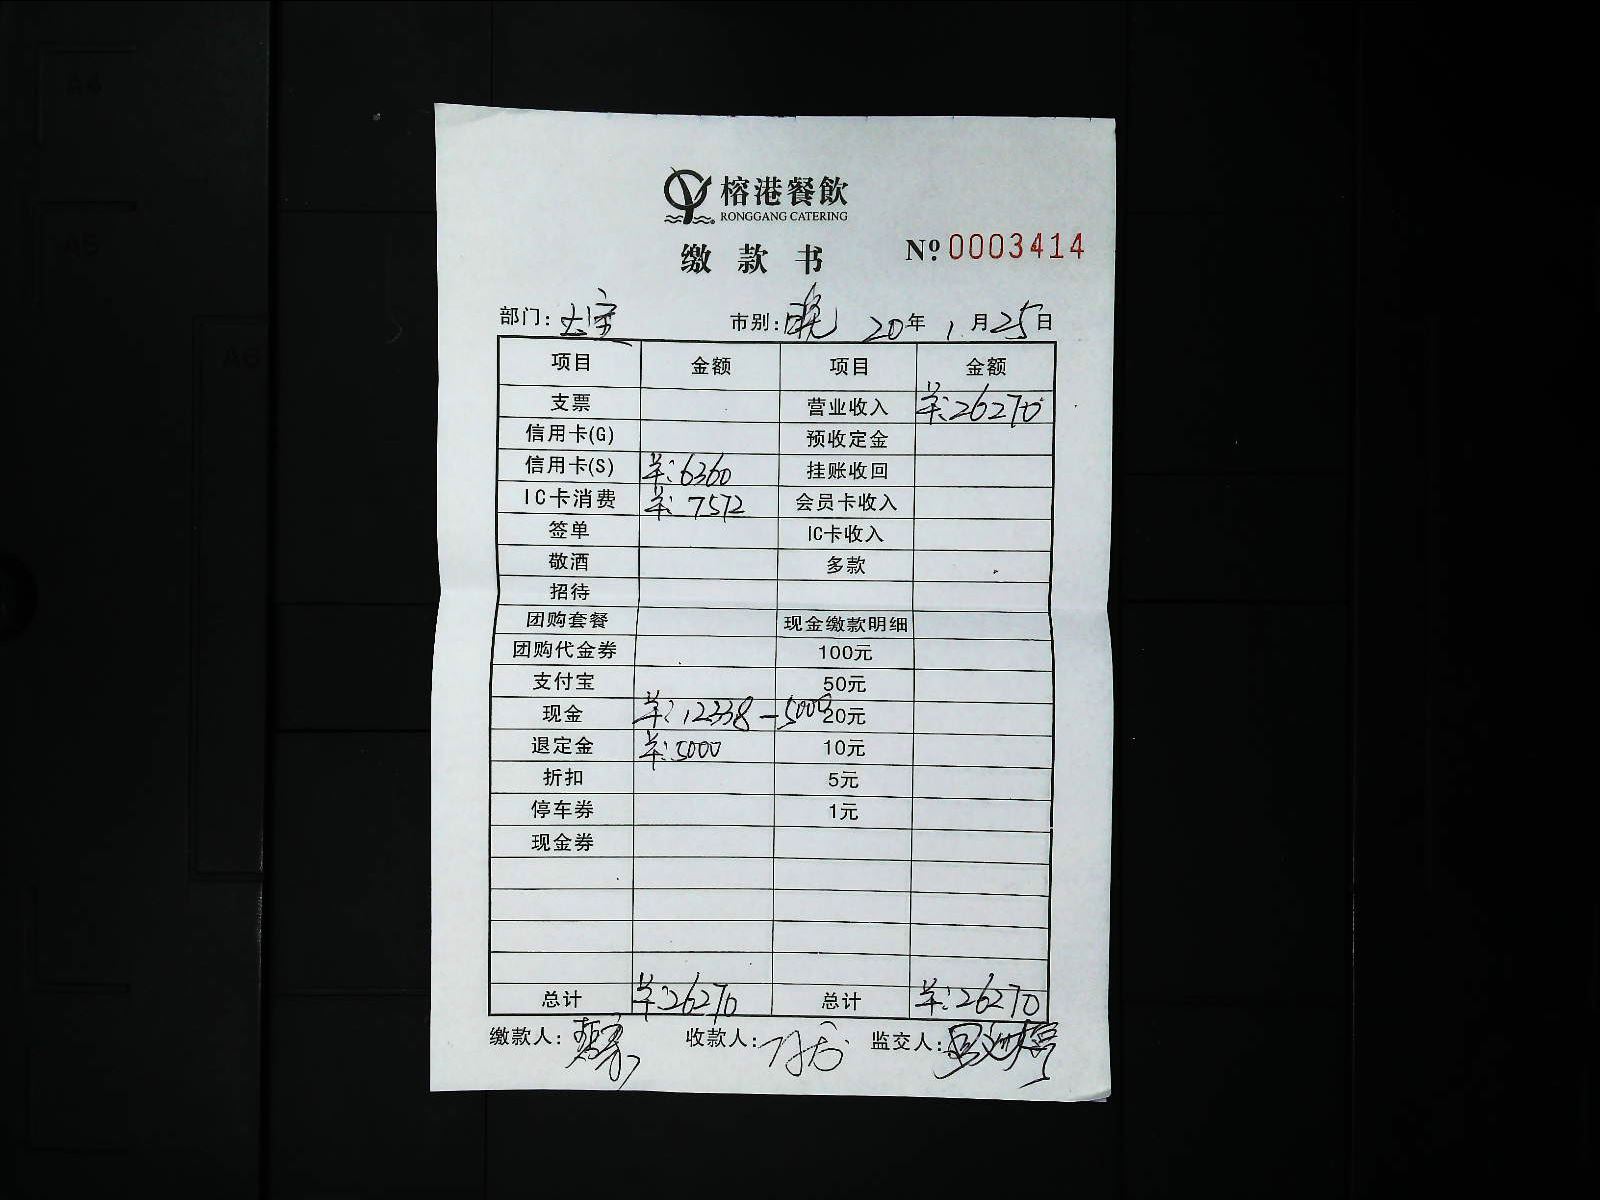 榕港餐飲
RONGGANG CATERING
缴 款 书 Nº 0003414
部门: 市别: 晚 20年 1月25日
项目 金额 项目 金额
支票 营业收入 羊:26270
信用卡(G) 预收定金
信用卡(S) 羊:6360 挂账收回
IC卡消费 羊:7572 会员卡收入
签单 IC卡收入
敬酒 多款
招待
团购套餐 现金缴款明细
团购代金券 100元
支付宝 50元
现金 羊:12338-5000 20元
退定金 羊:5000 10元
折扣 5元
停车券 1元
现金券
总计 羊:26270 总计 羊:26270
缴款人: 收款人: 监交人:
A4
A5
A6